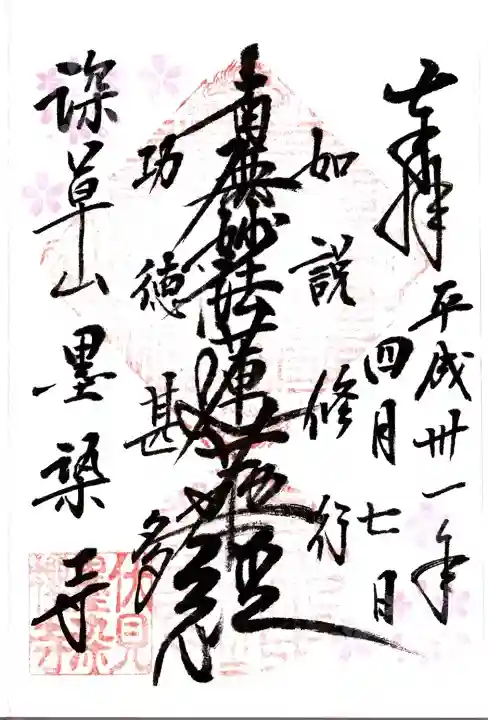 奉拝
平成卅一年
四月七日
如説修行
南無妙法蓮華経
功徳甚多
深草山墨染寺
伏見
墨染寺